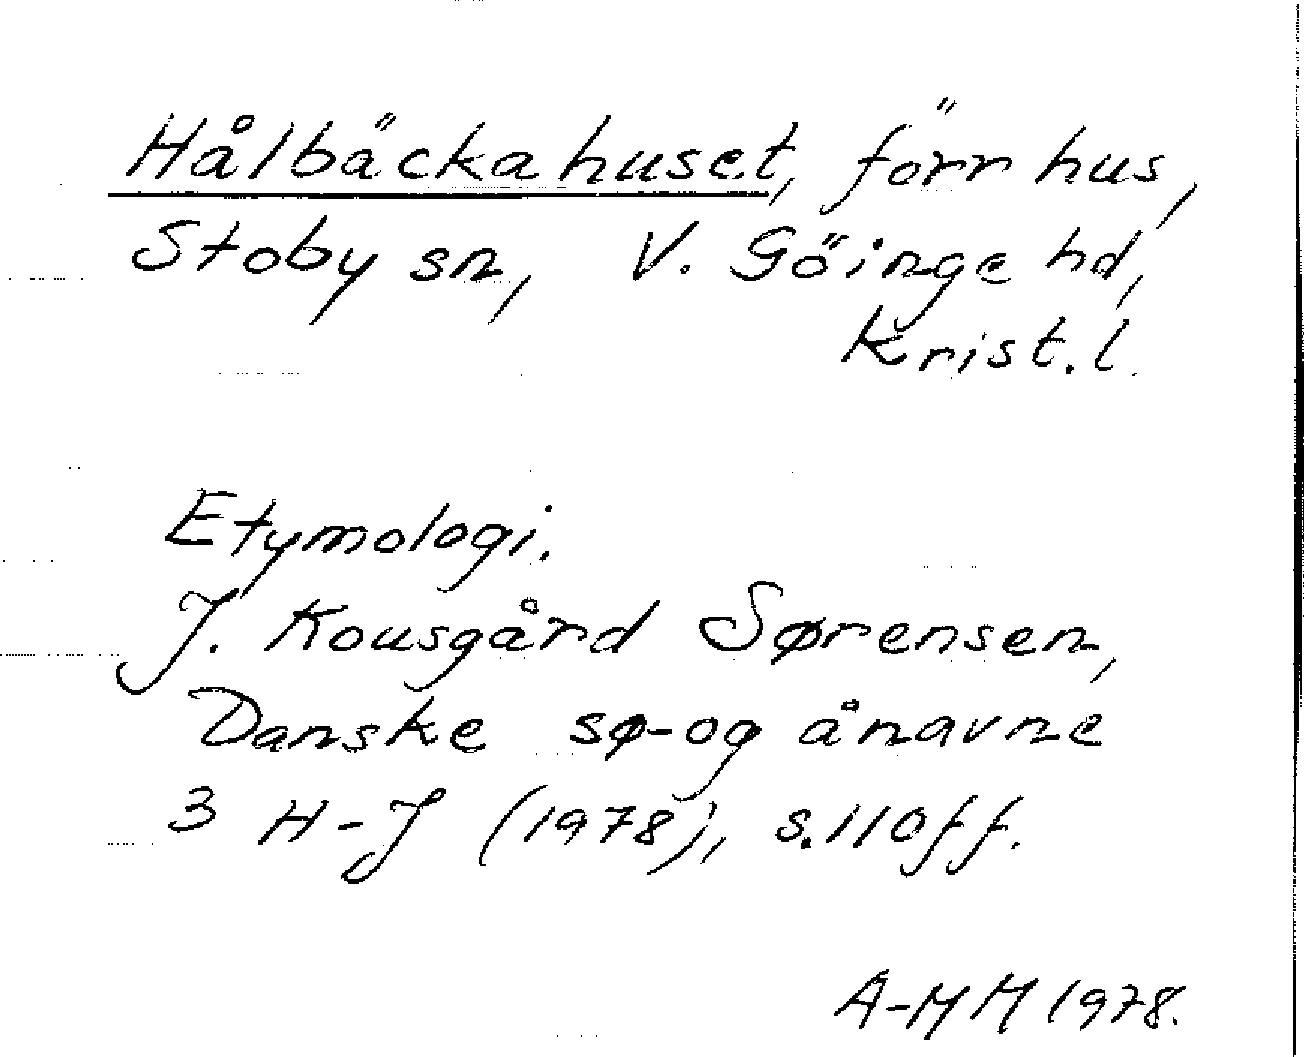 Hålbäckahuset, förr hus,
Stoby sn, V. Göinge hd,
Krist. l.
Etymologi.
J. Kousgård Sørensen,
Danske sø- og ånavne
3 H-J (1978), s. 110ff.
A-MH 1978.